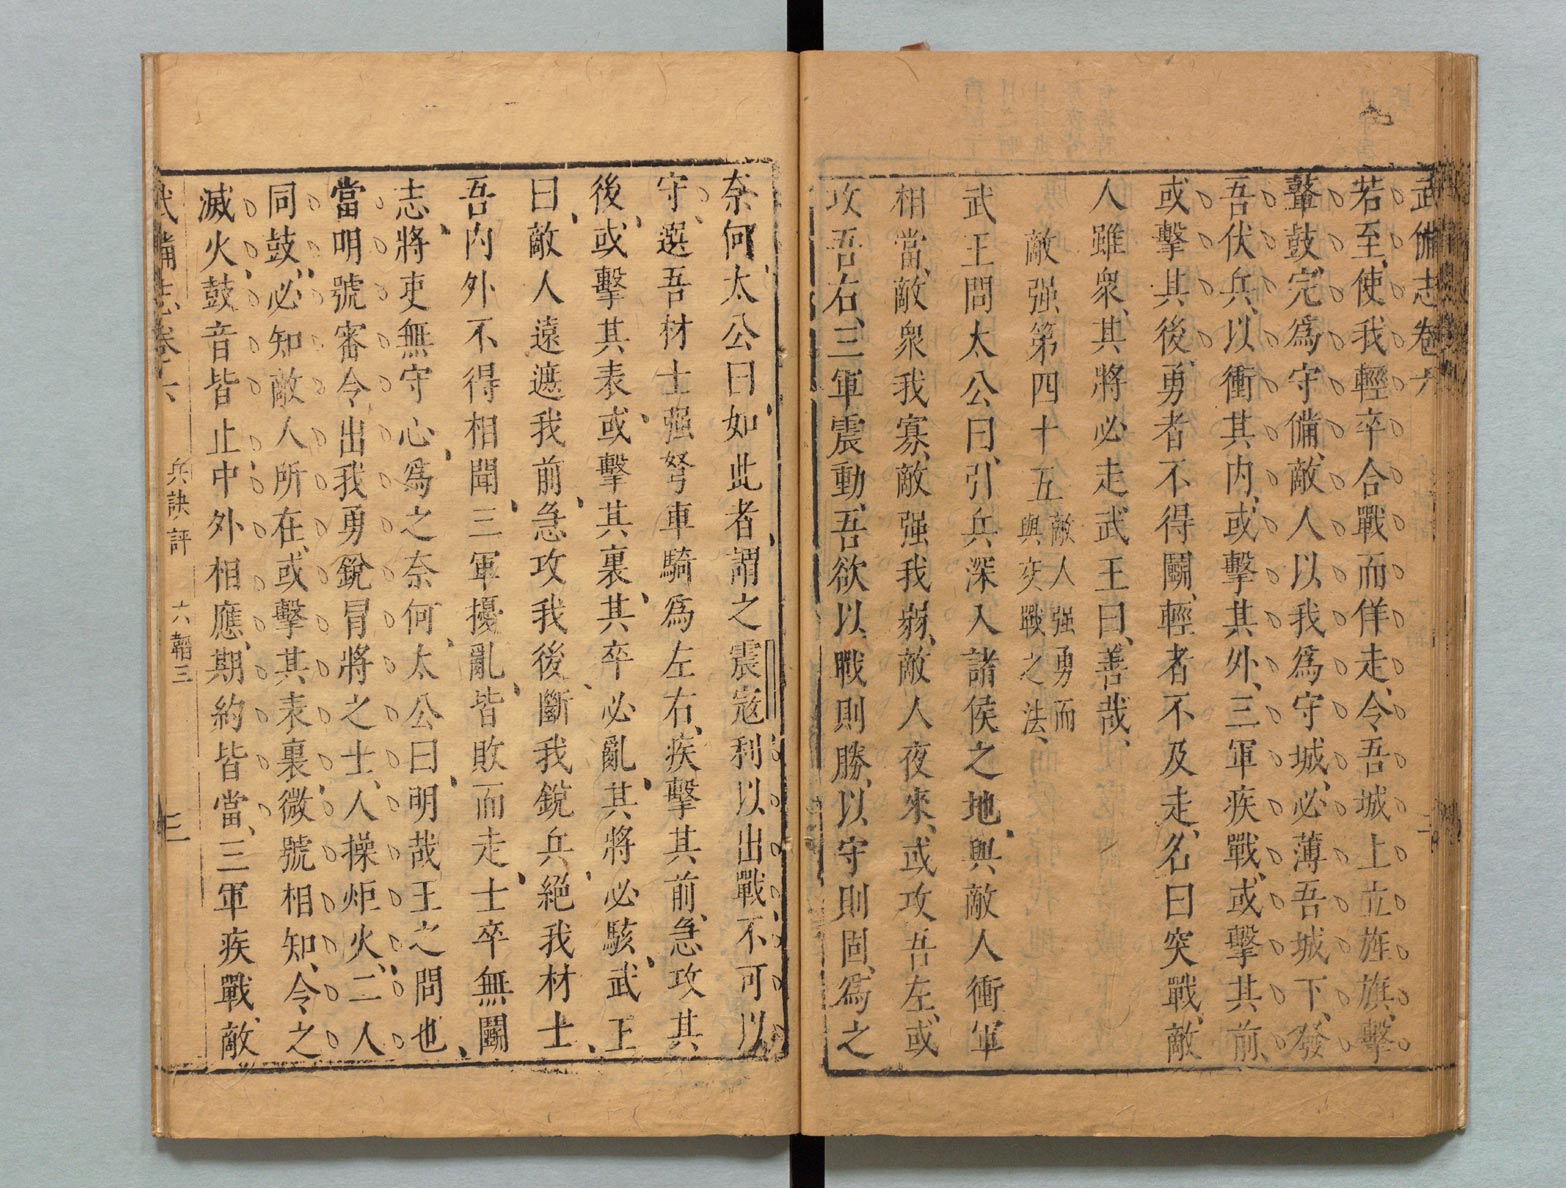 武備志卷六
若至使我輕卒合戰而佯走令吾城上立旌旗擊
鼙鼓完為守備敵人以我為守城必薄吾城下發
吾伏兵以衝其內或擊其外三軍疾戰或擊其前
或擊其後勇者不得鬭輕者不及走名曰突戰敵
人雖衆其將必走武王曰善哉
敵强第四十五敵人强勇而
與夜戰之法
武王問太公曰引兵深入諸侯之地與敵人衝軍
相當敵衆我寡敵强我弱敵人夜來或攻吾左或
攻吾右三軍震動吾欲以戰則勝以守則固為之
奈何太公曰如此者謂之震寇利以出戰不可以
守選吾材士强弩車騎為左右疾擊其前急攻其
後或擊其表或擊其裏其卒必亂其將必駭武王
曰敵人遠遮我前急攻我後斷我銳兵絕我材士
吾內外不得相聞三軍擾亂皆敗而走士卒無鬭
志將吏無守心為之奈何太公曰明哉王之問也
當明號審令出我勇銳冒將之士人操炬火二人
同鼓必知敵人所在或擊其表裏微號相知令之
滅火鼓音皆止中外相應期約皆當三軍疾戰敵
武備志卷六 兵訣評 六韜三 三